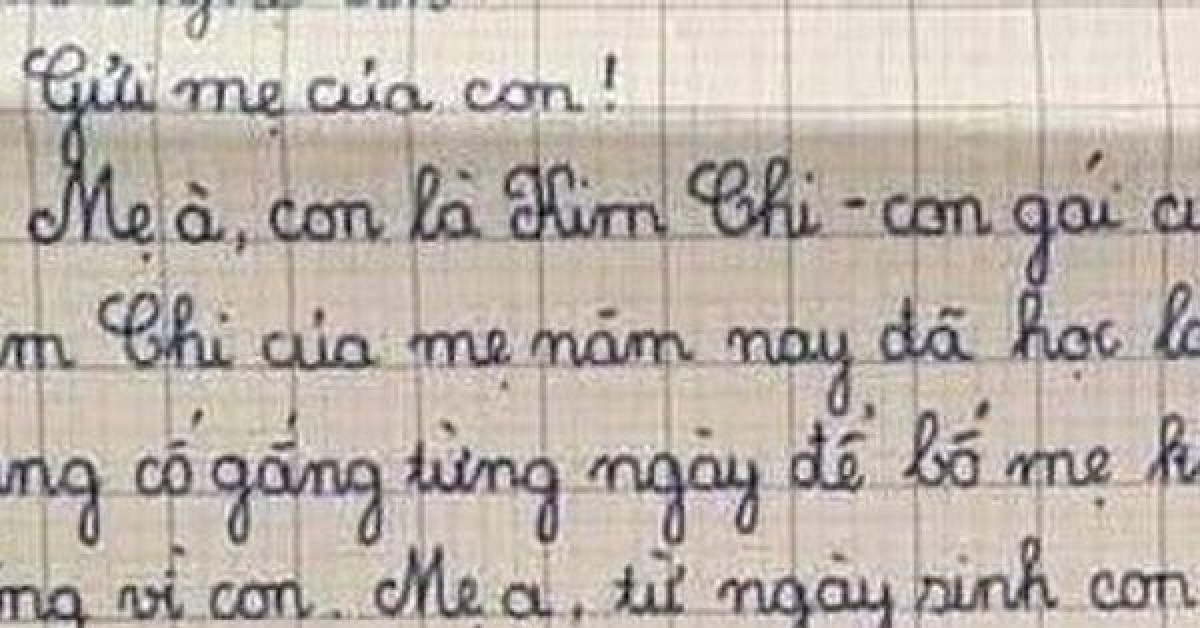 Gửi mẹ của con!
Mẹ à, con là Kim Chi - con gái
Chi của mẹ năm nay đã học
cố gắng từng ngày để bố mẹ
vì con. Mẹ ạ, từ ngày sinh con